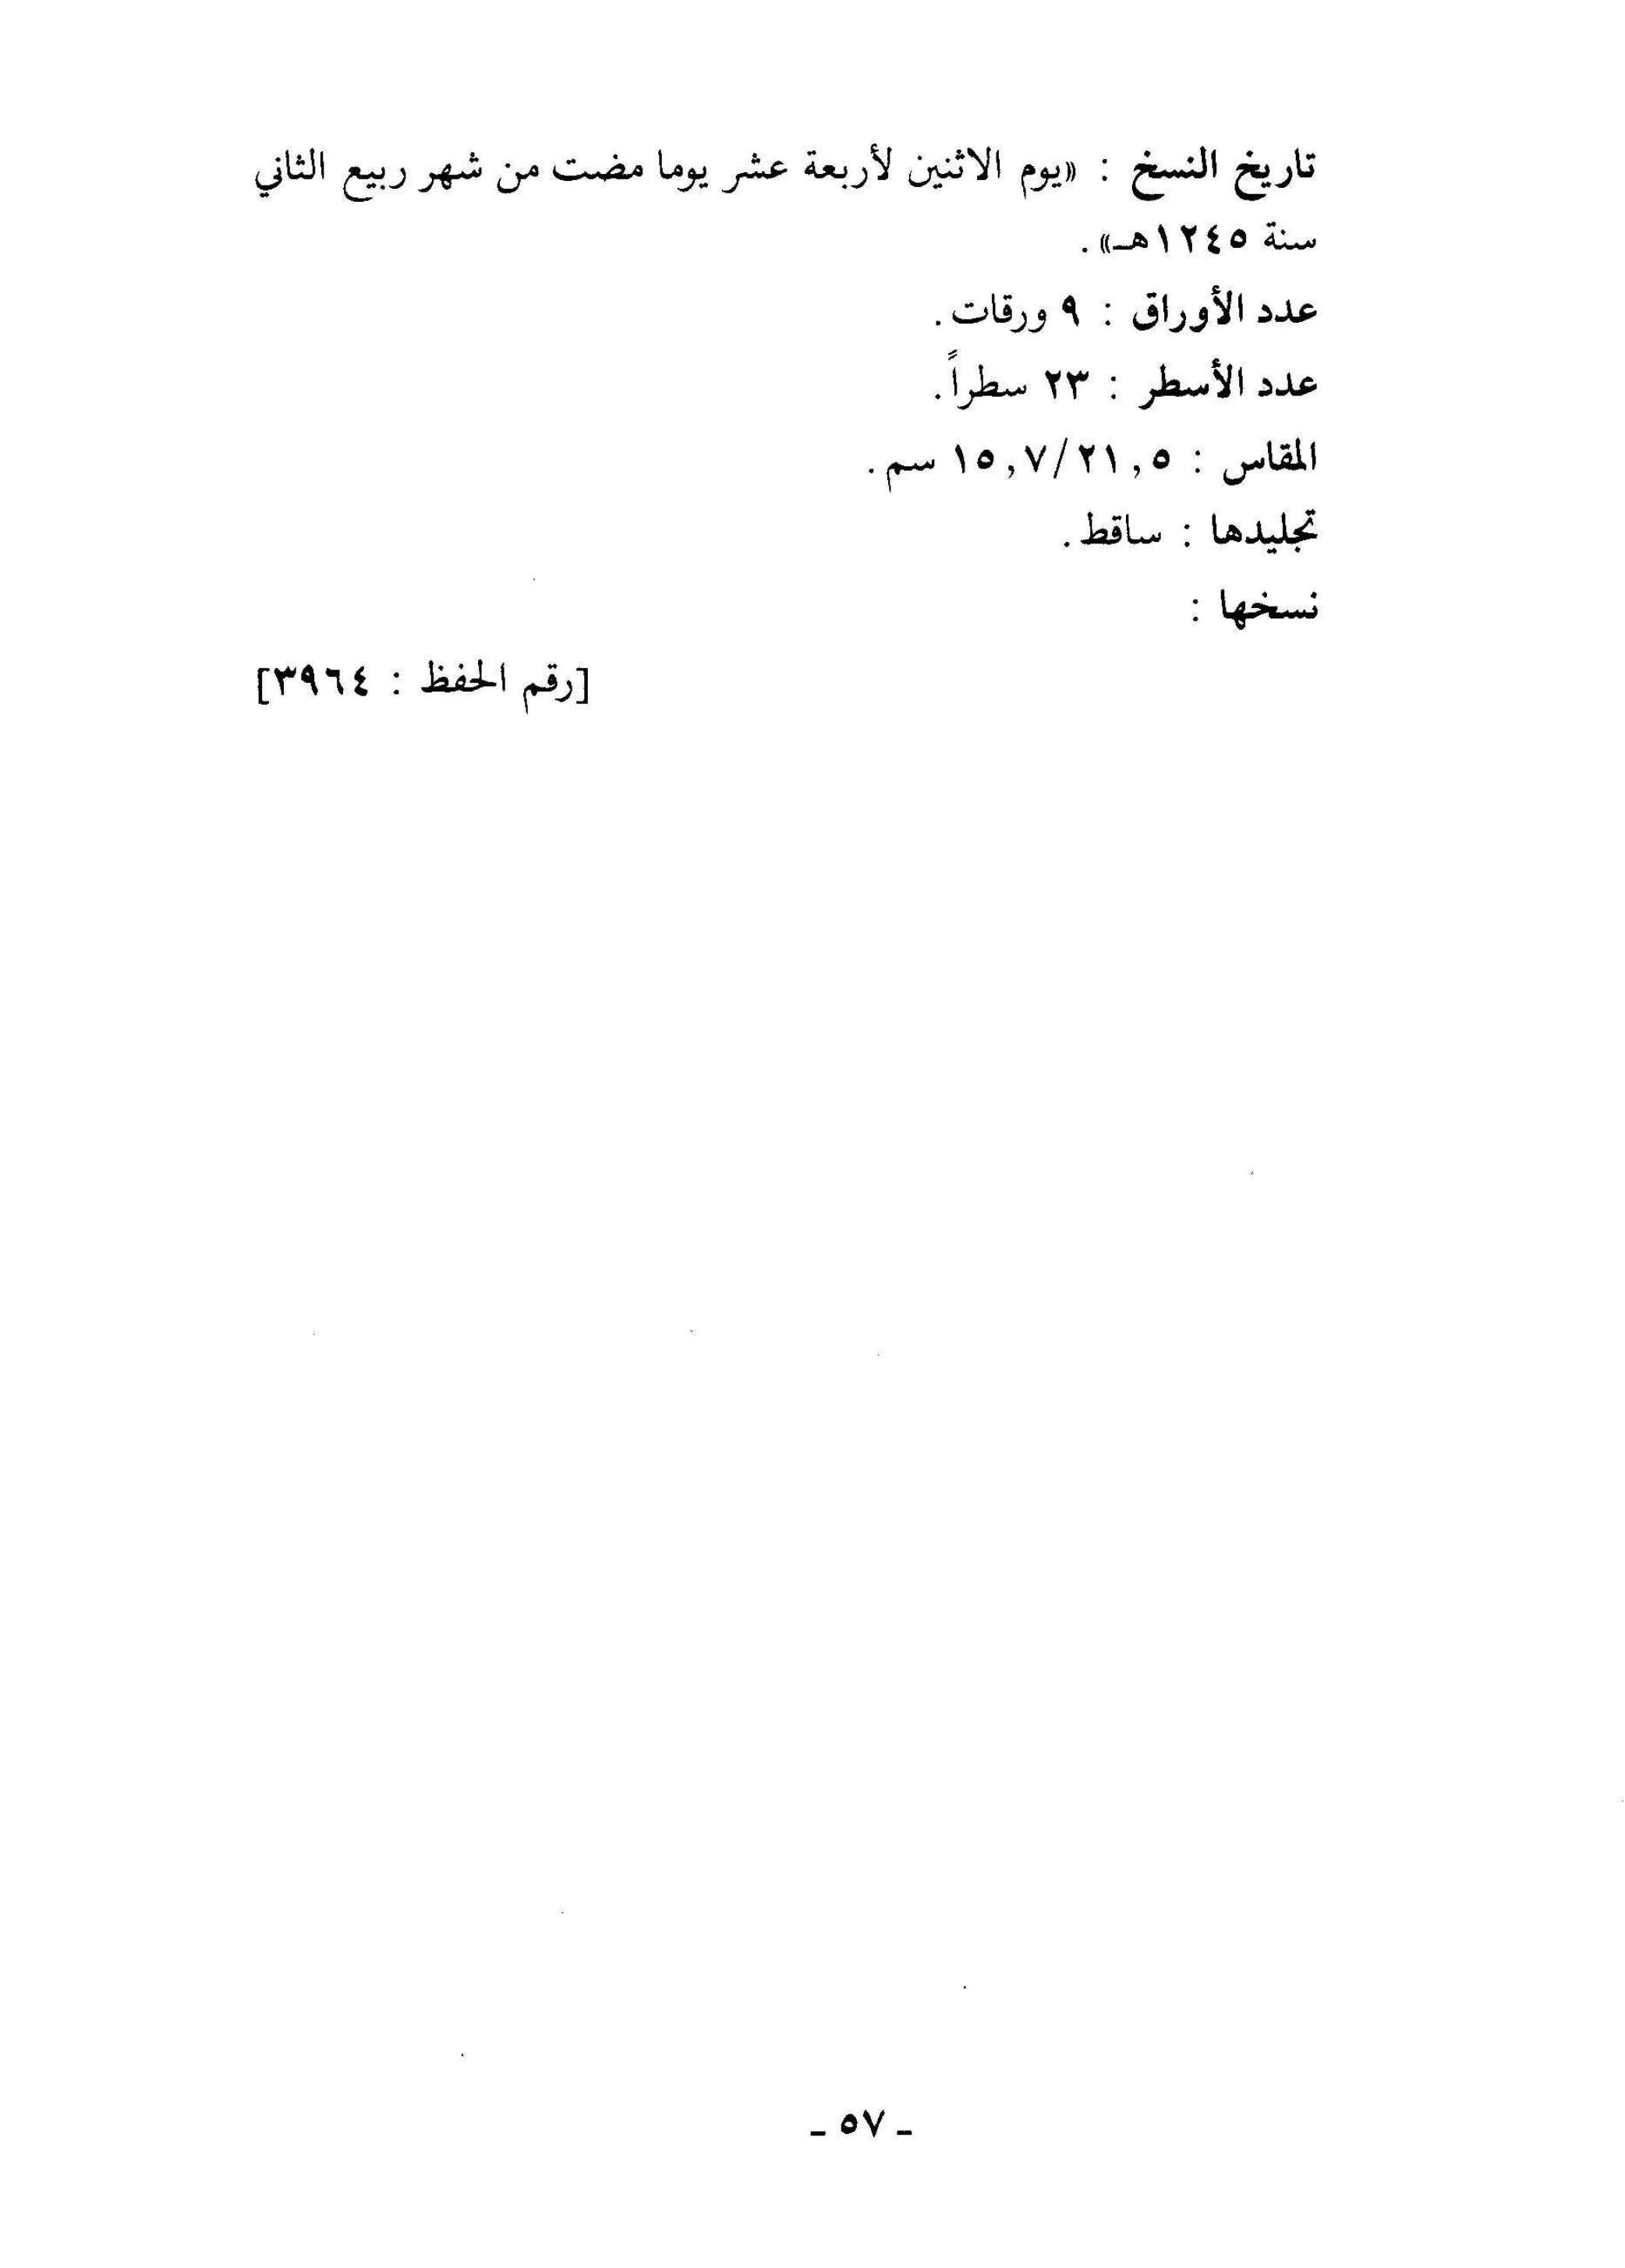 تاريخ النسخ : «يوم الاثنين لأربعة عشر يوما مضت من شهر ربيع الثاني
سنة ١٢٤٥هـ» .
عدد الأوراق : ٩ ورقات .
عدد الأسطر : ٢٣ سطراً .
المقاس : ١٥,٧/٢١,٥ سم .
تجليدها : ساقط .
نسخها :
[رقم الحفظ : ٣٩٦٤]
ـ ٥٧ ـ